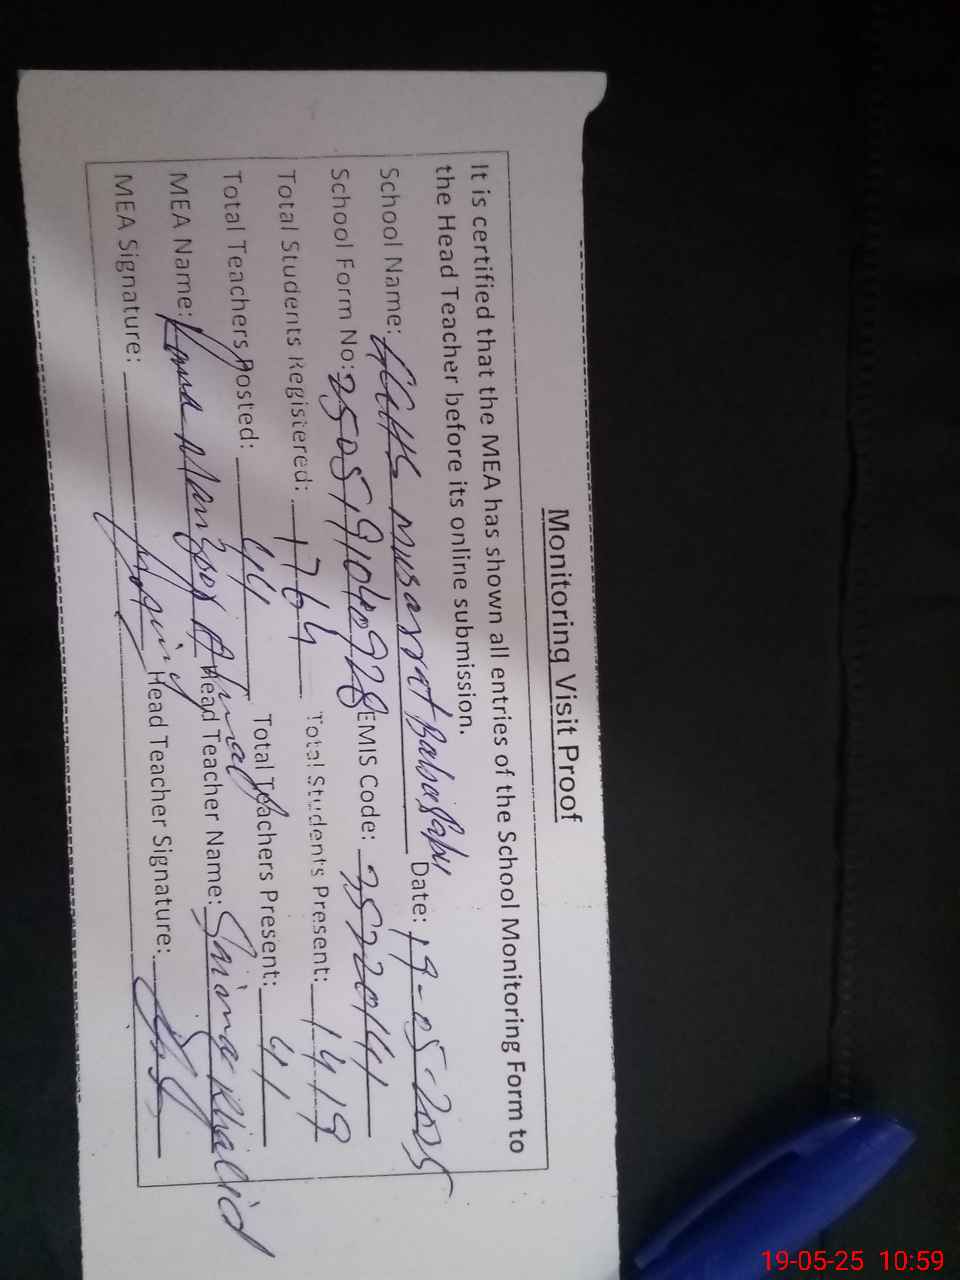 Monitoring Visit Proof
It is certified that the MEA has shown all entries of the School Monitoring Form to
the Head Teacher before its online submission.
School Name: GGHS musarrat Babasabu Date: 19-05-2025
School Form No: 2505191040928 EMIS Code: 35220141
Total Students Registered: 1764 Total Students Present: 1419
Total Teachers Posted: 44 Total Teachers Present: 41
MEA Name: Manzoor Ahmad Head Teacher Name: Saima Khalid
MEA Signature: Head Teacher Signature:
19-05-25 10:59